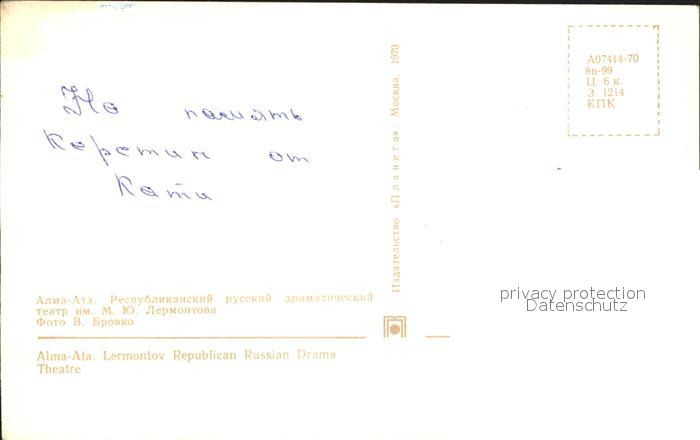 На память
Керстин от
Кати
Алма-Ата. Республиканский русский драматический
театр им. М. Ю. Лермонтова
Фото В. Бровко
Alma-Ata. Lermontov Republican Russian Drama
Theatre
Издательство «Планета» Москва, 1970
А07414-70
8в-99
Ц. 6 к.
З. 1214
КПК
privacy protection
Datenschutz